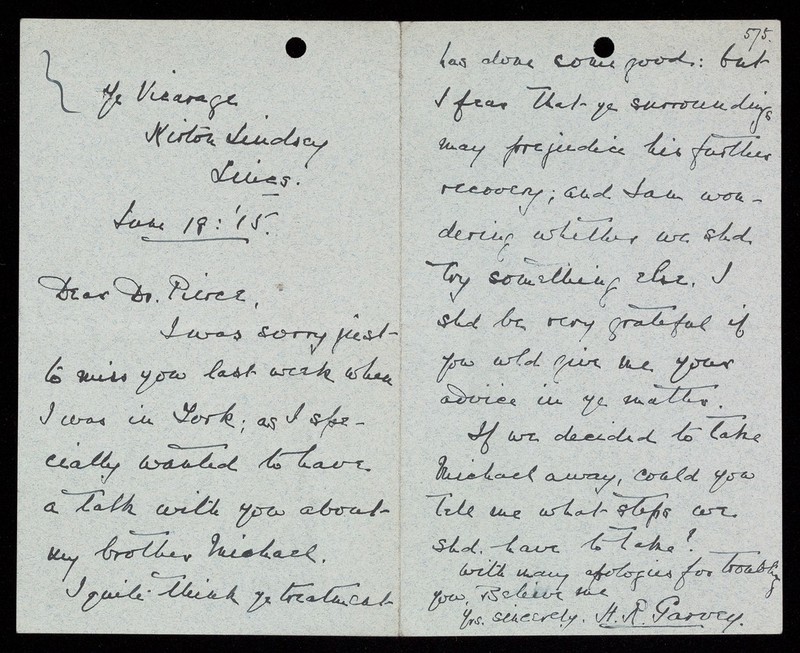 Ye Vicarage
Kirton Lindsey
Lincs.
June 18: '15.
Dear Dr. Pierce,
I was sorry just
to miss you last week when
I was in York; as I spe-
cially wanted to have
a talk with you about
my brother Michael.
I quite think ye treatment
5/5.
has done some good: but
I fear that ye surroundings
may prejudice his further
recovery; and I am won-
dering whether we shd.
try something else. I
shd be very grateful if
you wld give me your
advice in ye matter.
If we decided to take
Michael away, could you
tell me what steps we
shd. have to take?
With many apologies for troubling
you, Believe me
Yrs. sincerely, H. R. Garvey.